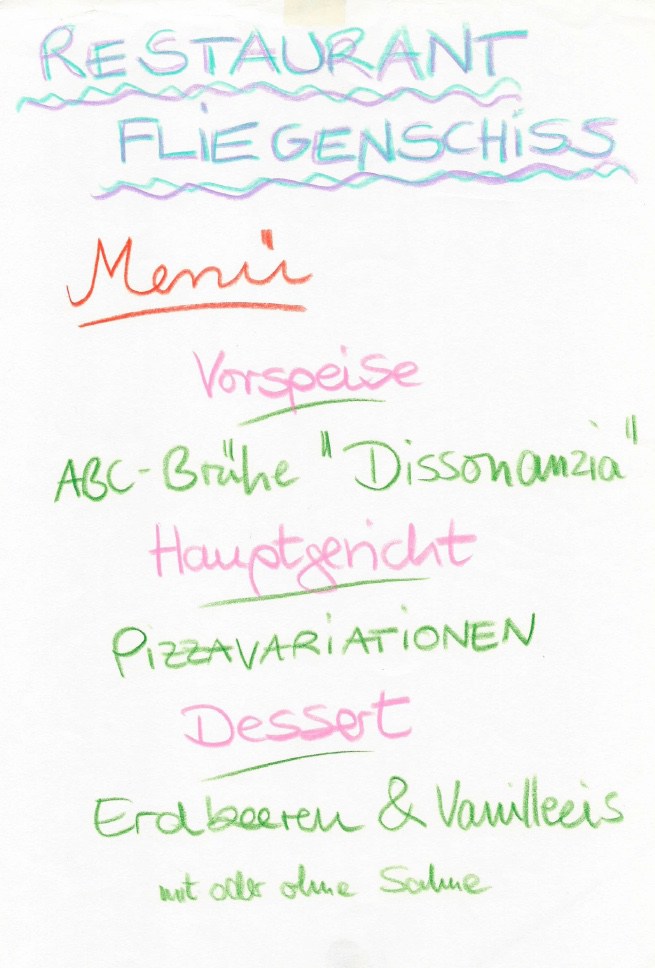 RESTAURANT
FLiEGENSCHiSS
Menü
Vorspeise
ABC-Brühe "Dissonanzia"
Hauptgericht
PiZZAVARiATiONEN
Dessert
Erdbeeren & Vanilleeis
mit oder ohne Sahne